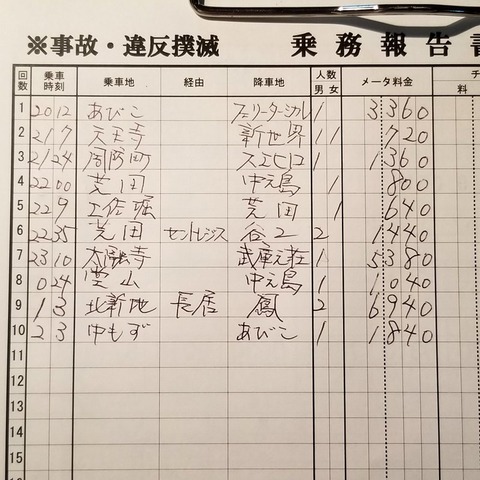 ※事故・違反撲滅 乗務報告書
回数 乗車時刻 乗車地 経由 降車地 人数 男 女 メータ料金 チ 料
1 20 12 あびこ フェリーターミナル 1 3360
2 21 7 天王寺 新世界 1 1 720
3 21 24 阿倍野 スエヒロ 1 1360
4 22 00 兎田 中之島 1 800
5 22 9 土佐堀 兎田 1 640
6 22 35 兎田 セントレジス 谷2 2 1440
7 23 10 太融寺 武庫之荘 1 5380
8 0 24 堂山 中之島 1 1040
9 1 3 北新地 長居 鳳 2 6940
10 2 3 中もず あびこ 1 1840
11
12
13
14
15